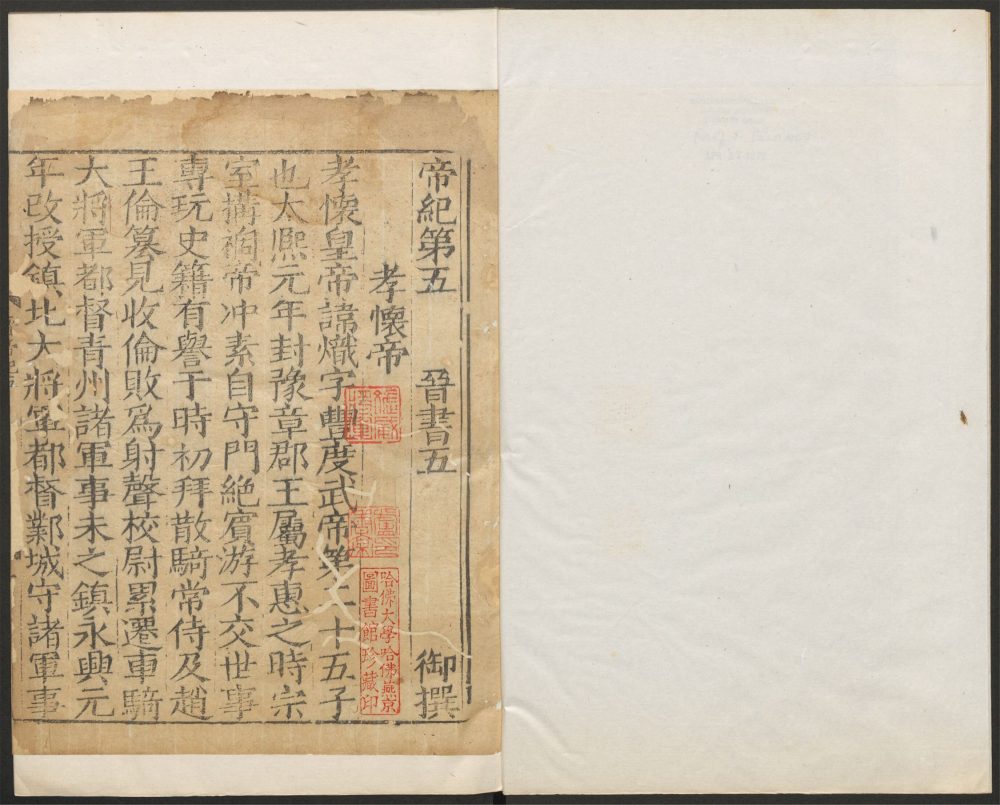 帝紀第五 晉書五 御撰
孝懷帝
孝懷皇帝諱熾字豐度武帝第二十五子
也太熈元年封豫章郡王屬孝惠之時宗
室搆禍帝冲素自守門絶賓游不交世事
專玩史籍有譽于時初拜散騎常侍及趙
王倫簒見收倫敗爲射聲校尉累遷車騎
大將軍都督青州諸軍事未之鎮永興元
年改授鎮北大將軍都督鄴城守諸軍事
哈佛大學哈佛燕京
圖書館珍藏印